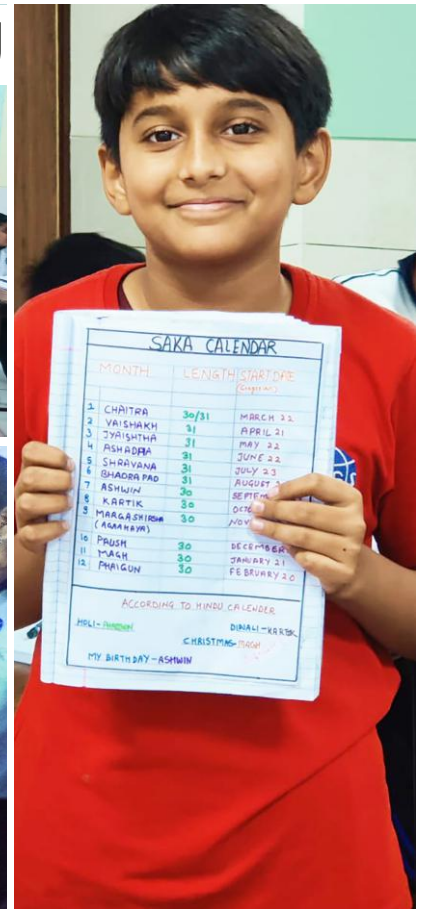 SAKA CALENDAR
MONTH LENGTH START DATE
1 CHAITRA 30/31 MARCH 22
2 VAISHAKH 31 APRIL 21
3 JYAISHTHA 31 MAY 22
4 ASHADHA 31 JUNE 22
5 SHRAVANA 31 JULY 23
6 BHADRAPAD 31 AUGUST
7 ASHWIN 30 SEPTEM
8 KARTIK 30
9 MARGASHIRSHA 30 NOV
10 PAUSH 30 DECEMBER
11 MAGH 30 JANUARY 21
12 PHALGUN 30 FEBRUARY 20
ACCORDING TO HINDU CALENDER
HOLI- DIWALI-KARTIK
CHRISTMAS-MAGH
MY BIRTHDAY-ASHWIN